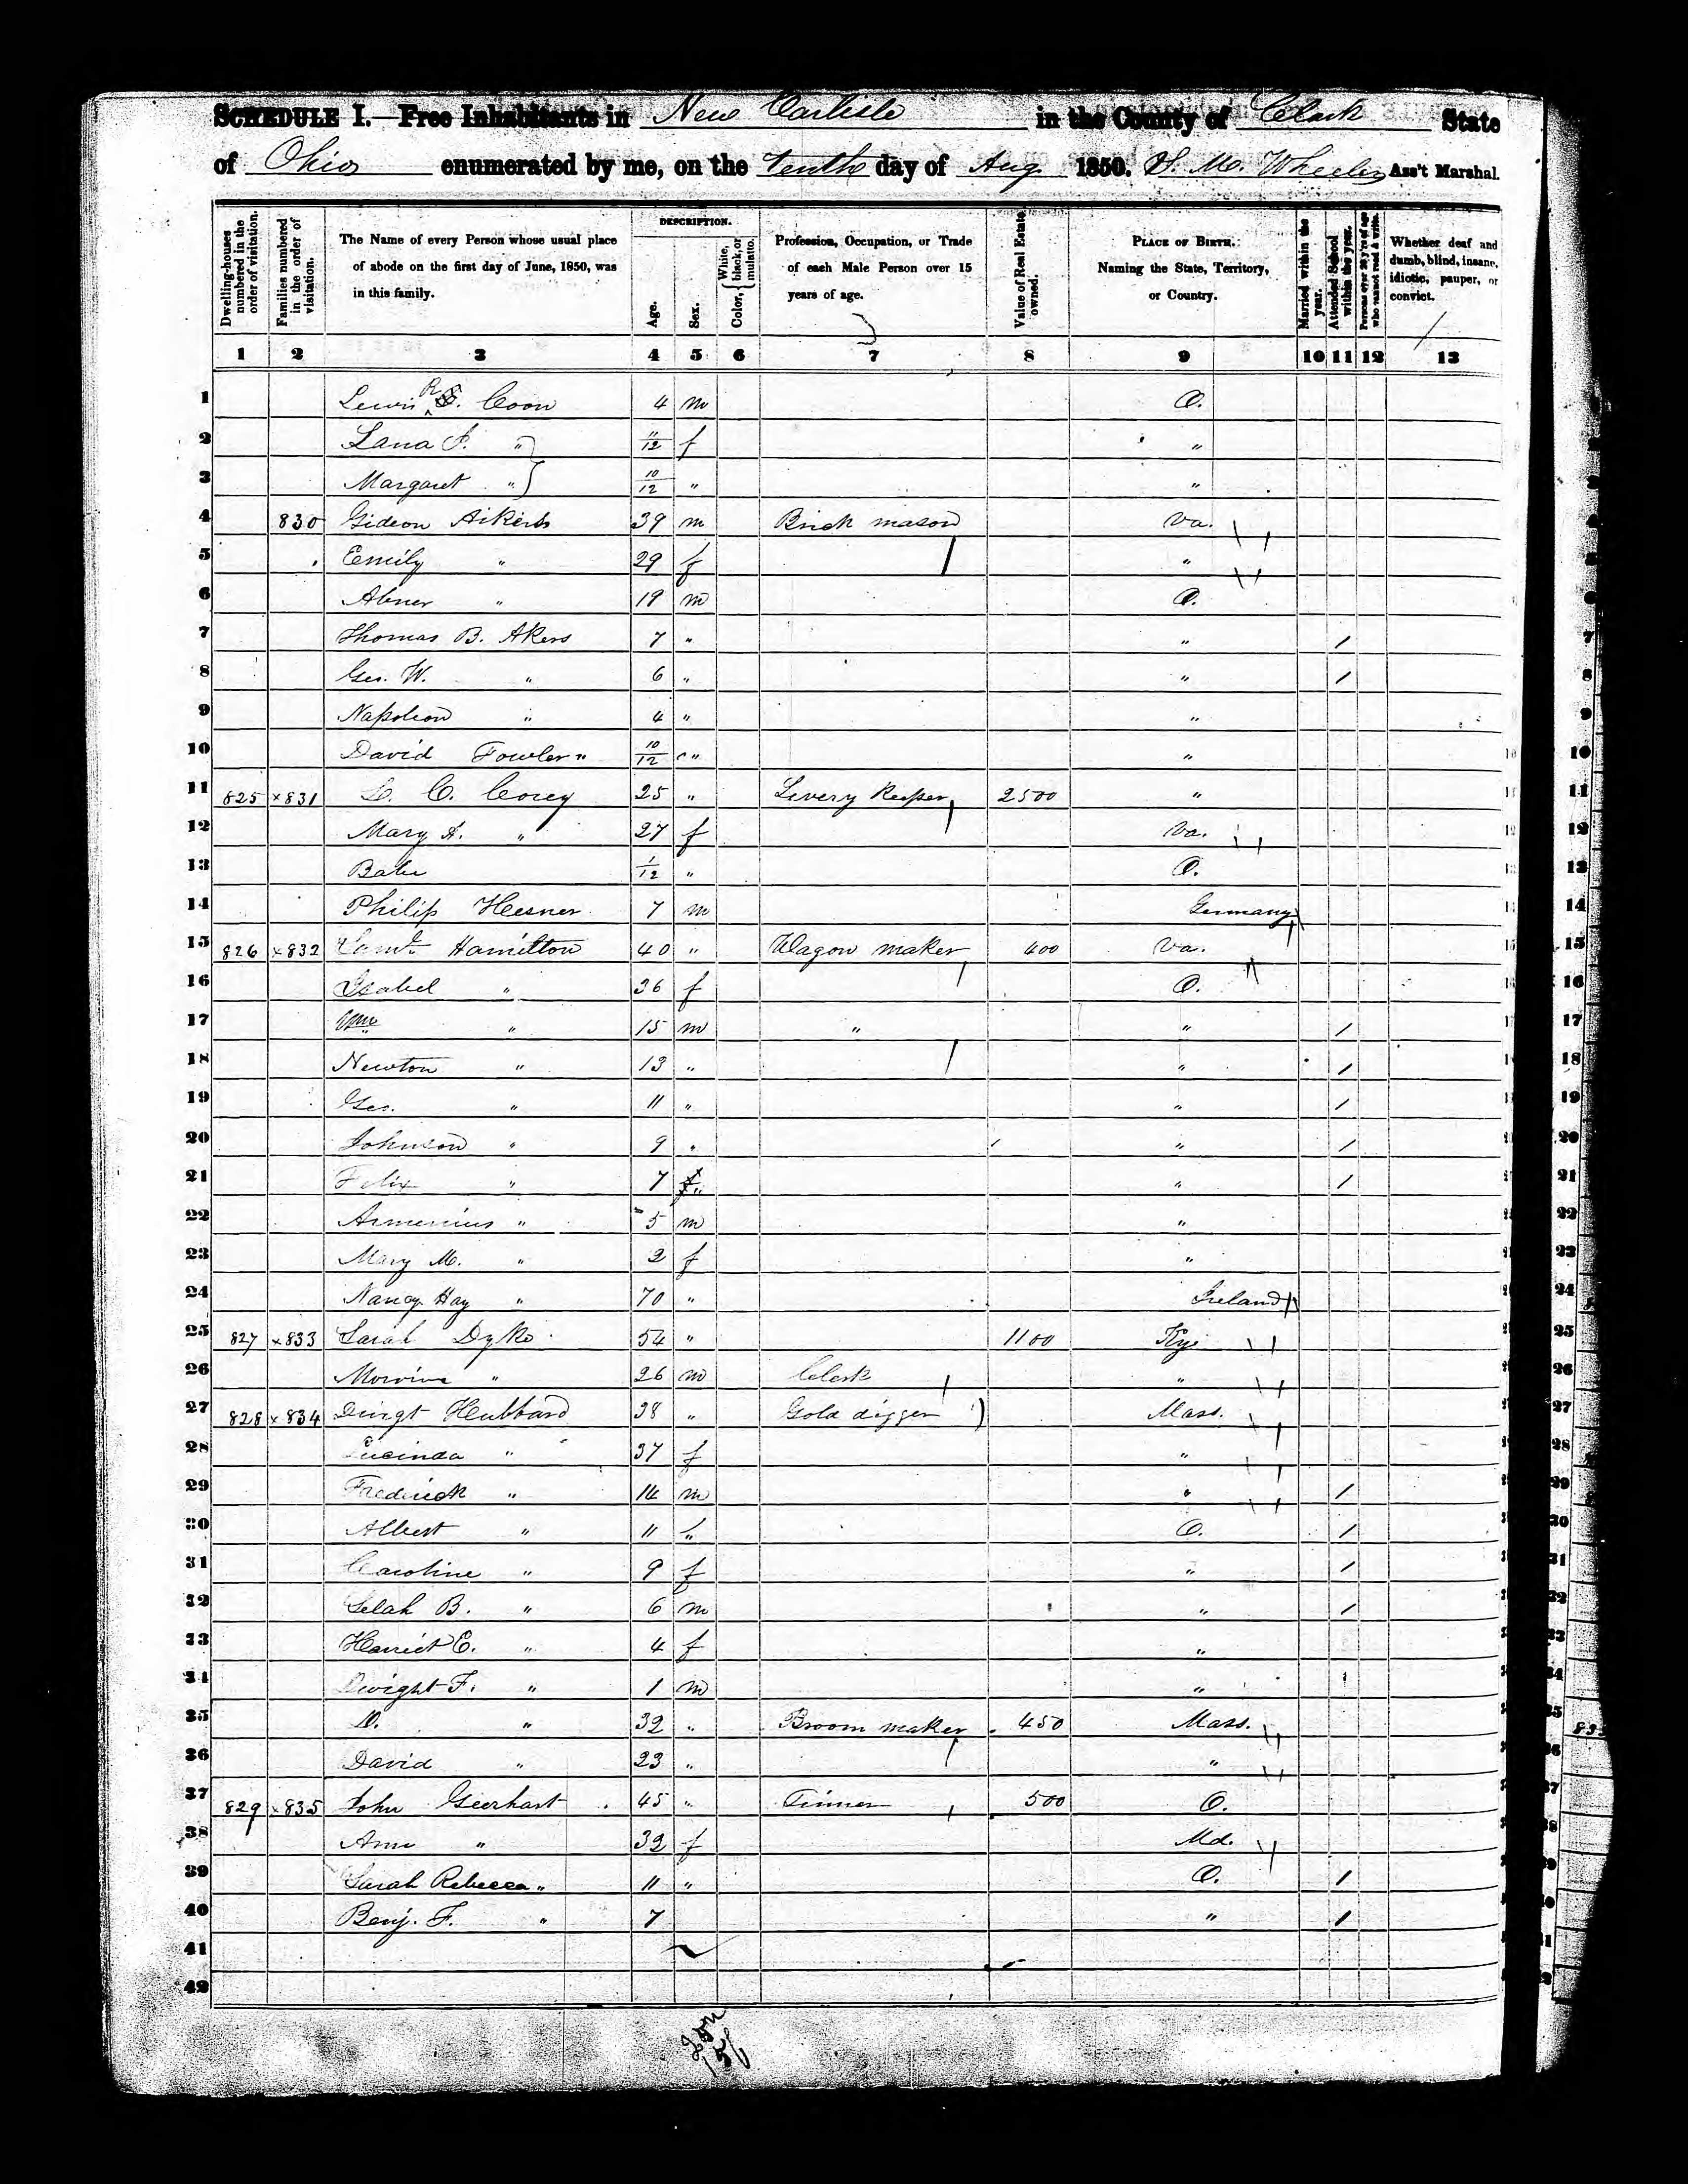 SCHEDULE I.—Free Inhabitants in New Carlisle in the County of Clark State
of Ohio enumerated by me, on the Tenth day of Aug. 1850. M. Wheeler Ass't Marshal.
Dwelling-houses numbered in the order of visitation.
Families numbered in the order of visitation.
The Name of every Person whose usual place of abode on the first day of June, 1850, was in this family.
DESCRIPTION.
Age.
Sex.
Color, { White, black, or mulatto.
Profession, Occupation, or Trade of each Male Person over 15 years of age.
Value of Real Estate owned.
PLACE OF BIRTH. Naming the State, Territory, or Country.
Married within the year.
Attended School within the year.
Persons over 20 y'rs of age who cannot read & write.
Whether deaf and dumb, blind, insane, idiotic, pauper, or convict.
1 2 3 4 5 6 7 8 9 10 11 12 13
1 Lewis R. Coon 4 m O.
2 Lana " 11/12 f "
3 Margaret " 10/12 " "
4 830 Gideon 39 m Brick mason Va. 4
5 Emily " 29 f "
6 Abner " 19 m O. 6
7 Thomas B. Akers 7 " " / 7
8 Geo. W. " 6 " " / 8
9 Napoleon " 4 " " 9
10 David Fowler " 10/12 " " 10
11 825 x831 C. Corey 25 " Livery Keeper 2500 " 11
12 Mary A. " 27 f Va. 12
13 Babe 1/12 " O. 13
14 Philip Hesner 7 m Germany 14
15 826 x832 Saml. Hamilton 40 " Wagon maker 400 Va. 15
16 Isabel " 36 f O. 16
17 Wm " 15 m " " / 17
18 Newton " 13 " " / 18
19 Geo. " 11 " " / 19
20 Johnson " 9 " " / 20
21 Felix " 7 " " / 21
22 Armenius " 5 m " 22
23 Mary M. " 2 f " 23
24 Nancy Hay " 70 " Ireland 24
25 827 x833 Sarah Dyke 54 " 1100 Ky 25
26 " 26 m Clerk " 26
27 828 x834 Hubbard 38 " Gold digger Mass. 27
28 Lucinda " 37 f " 28
29 Frederick " 14 m " / 29
30 Albert " 11 " O. / 30
31 Caroline " 9 f " / 31
32 Selah B. " 6 m " / 32
33 Harriet E. " 4 f " 33
34 Dwight F. " 1 m " 34
35 D. " 32 " Broom maker 450 Mass. 35
36 David " 23 " " 36
37 829 x835 John Geerhart 45 " Tinner 500 O. 37
38 Ann " 32 f Md. 38
39 Sarah Rebecca " 11 " O. / 39
40 Benj. F. " 7 " / 40
41
42